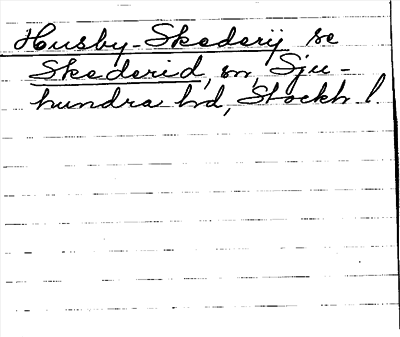 Husby-Skederij se
Skederid, sn, Sju-
hundra hd, Stockh l.